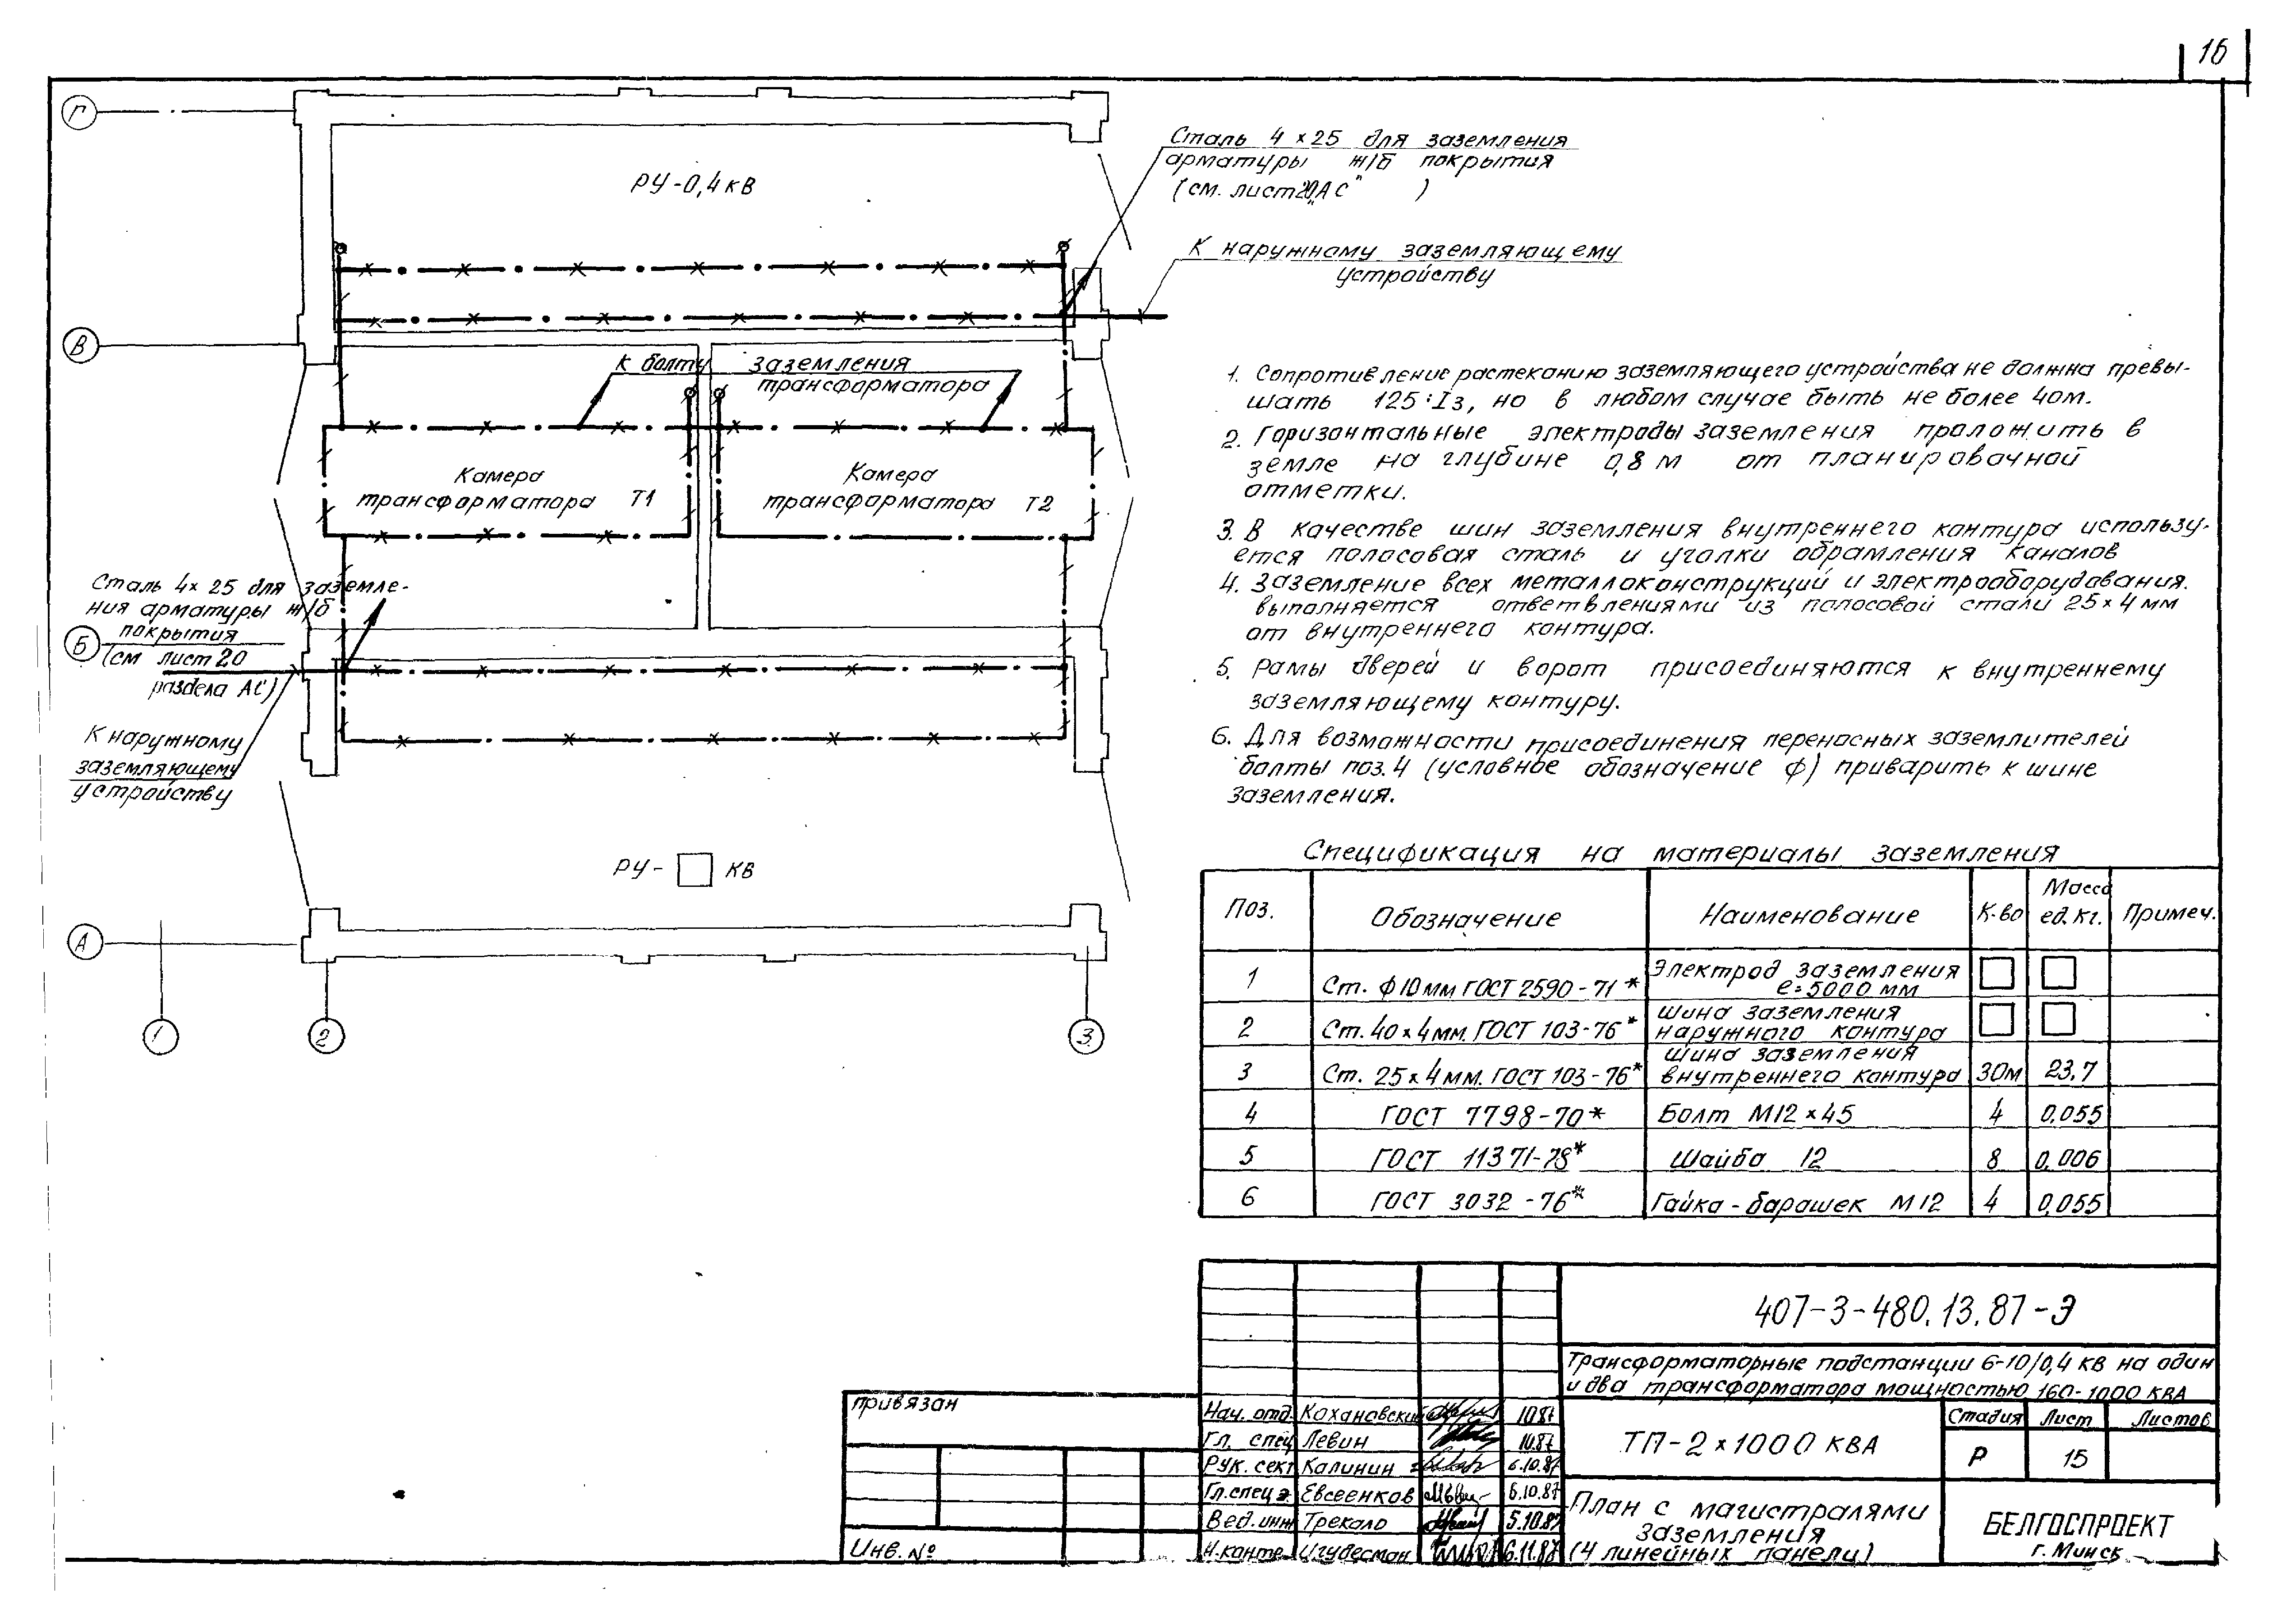 16
Г
РУ-0,4 кв
Сталь 4 х 25 для заземления
арматуры ж/б покрытия
(см. лист 20 „АС")
К наружному заземляющему
устройству
В
К болту заземления
трансформатора
Камера
трансформатора Т1
Камера
трансформатора Т2
Сталь 4х 25 для заземле-
ния арматуры ж/б
покрытия
(см лист 20
раздела АС)
Б
К наружному
заземляющему
устройству
РУ- □ кв
А
1
2
3
1. Сопротивление растеканию заземляющего устройства не должна превы-
шать 125:Iз, но в любом случае быть не более 4ом.
2. Горизонтальные электроды заземления проложить в
земле на глубине 0,8 м от планировочной
отметки.
3. В качестве шин заземления внутреннего контура использу-
ется полосовая сталь и уголки обрамления каналов
4. Заземление всех металлоконструкций и электрооборудования.
выполняется ответвлениями из полосовой стали 25 х 4 мм
от внутреннего контура.
5. Рамы дверей и ворот присоединяются к внутреннему
заземляющему контуру.
6. Для возможности присоединения переносных заземлителей
болты поз. 4 (условное обозначение ф) приварить к шине
заземления.
Спецификация на материалы заземления
Поз. Обозначение Наименование К-во Масса ед. кг. Примеч.
1 Ст. ф10мм ГОСТ 2590-71* Электрод заземления ℓ=5000 мм □ □
2 Ст. 40 х 4 мм. ГОСТ 103-76* Шина заземления наружного контура □ □
3 Ст. 25 х 4 мм. ГОСТ 103-76* Шина заземления внутреннего контура 30м 23,7
4 ГОСТ 7798-70* Болт М12 х 45 4 0,055
5 ГОСТ 11371-78* Шайба 12 8 0,006
6 ГОСТ 3032-76* Гайка-барашек М12 4 0,055
407-3-480.13.87-Э
Трансформаторные подстанции 6-10/0,4 кв на один
и два трансформатора мощностью 160-1000 ква
привязан
Инв. №
Нач. отд. Кохановский 10.87
Гл. спец Левин 10.87
Рук. сект Калинин 6.10.87
Гл. спец э. Евсеенков 6.10.87
Вед. инж Трекало 5.10.87
Н. контр. Игудесман 6.11.87
ТП-2 х 1000 ква
Стадия Лист Листов
Р 15
План с магистралями
заземления
(4 линейных панели)
БЕЛГОСПРОЕКТ
г. Минск